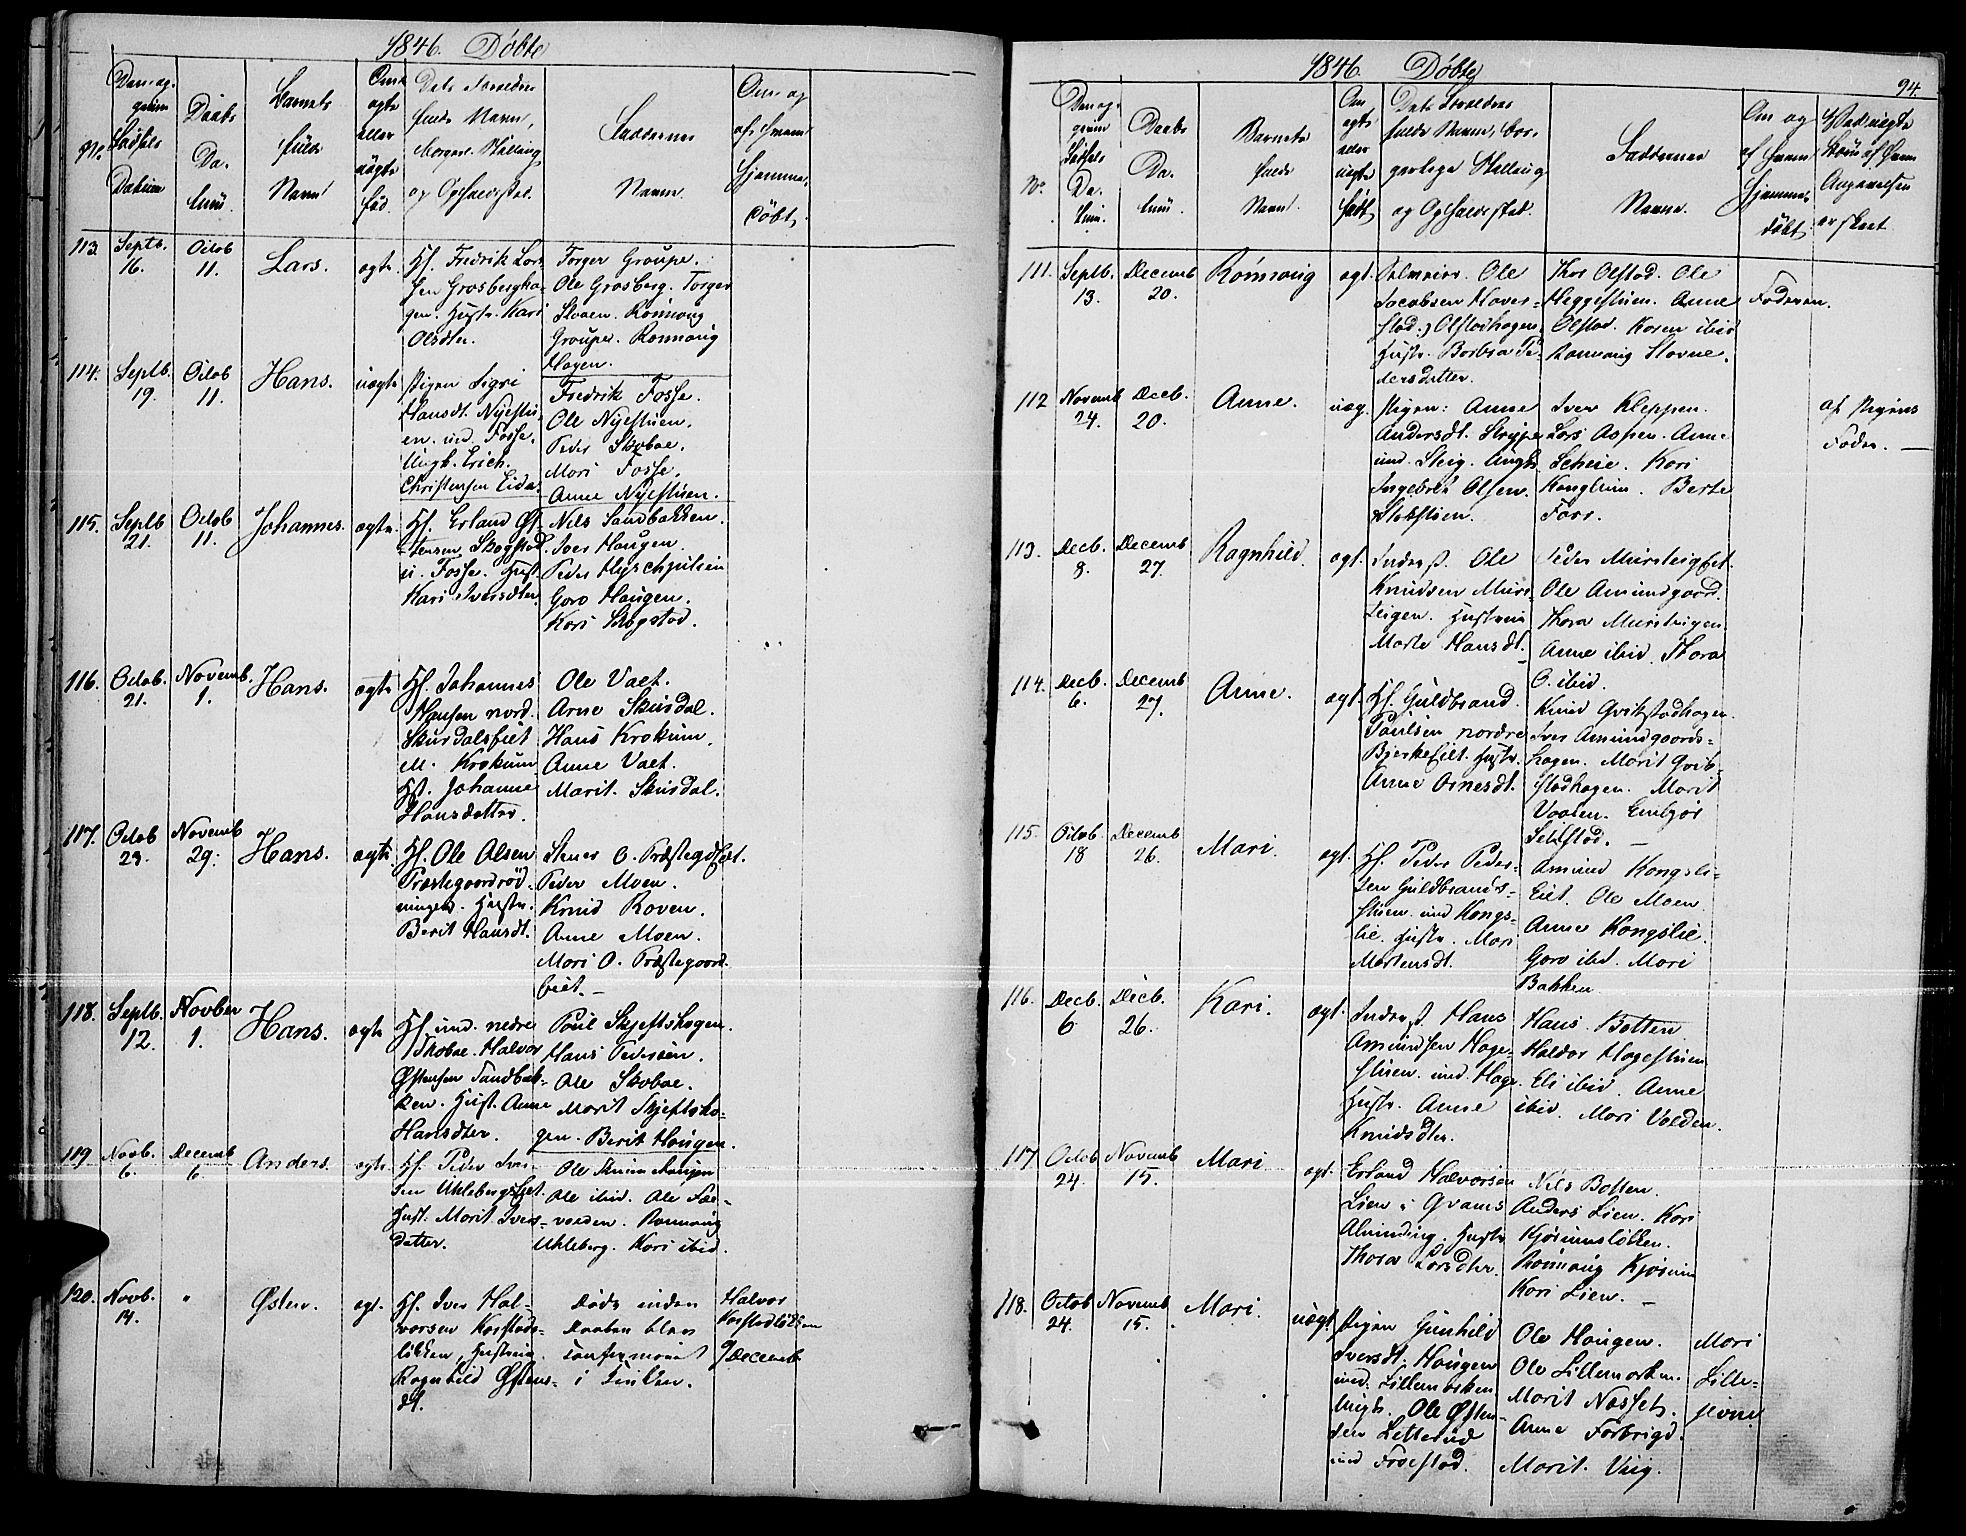 1846. Døbte
No.
Datum
Daabs
Da-
tum.
Barnets
fulde
Navn
ægte
eller
uægte
fød.
fulde Navn,
og Opholdssted.
Faddernes
Navne.
Om og
Hjemme-
døbt.
113. Septb. 16. Octob 11. Lars. ægte.
Gf. Fredrik Lars-
sen Grosbergha-
gen. Hustr. Kari
Olsdter.
Torger Groupe.
Ole Grosberg. Torger
Sloaen. Rønnoug
Groupe. Rønnoug
Hagen.
114. Septb. 19. Octob 11. Hans. uægte
Pigen Sigri
Hansdt. Nyestu-
en. ind. Fosse.
Ungk. Erich
Christensen Eide.
Fredrik Fosse.
Ole Nyestuen.
Peder Skoboe.
Mari Fosse.
Anne Nyestuen.
115. Septb 21. Octob 11. Johannes. ægte.
Gf. Erland Øs-
tensen Skogstad
u. Fosse. Hust.
Kari Iversdter.
Nils Sandbakken.
Iver Haugen.
Goro Haugen.
Kari Skogstad.
116. Octob. 21. Novemb. 1. Hans. ægte
Gf. Johannes
Hansen nord.
Skurdalseiet
M. Krokum
Hst. Johanne
Hansdatter.
Ole Vaet.
Arne Skurdal.
Hans Krokum.
Anne Vaet.
Marit Skurdal.
117. Octob 23. Novemb 29. Hans. ægte
Gf. Ole Olsen
Præstegaardrød-
ningen. Hustr.
Berit Hansdt.
Peder Moen.
Knud Roven.
Anne Moen.
Mari O. Præstegaard-
eiet.
118. Septb. 12. Novber 1. Hans. ægte
Gf. ind. nedre
Skoboe. Halvor
Østensen Sandbak-
ken. Hust. Anne
Hansdter.
Poul Skjeftshagen.
Hans Pedersen.
Ole Skoboe.
Marit Skjeftsha-
gen. Berit Haugen.
119 Novb. 6. Decemb 6. Anders. ægte.
Gf. Peder Iver-
sen Uhlebergseiet.
Hust. Marit Ivers-
datter.
Ole ibid. Ole Sæ-
vorden. Rønnoug
Uhleberg. Kari ibid.
120. Novb. 14. " Østen. ægt.
Gf. Iver Hal-
vorsen Korstads-
løkken. Hustrue
Ragnhild Østens-
dt.
Døde inden
Daaben blev
confirmeret
i Kirken.
Halvor
Korstadløkken
9 Decemb.
1846. Døbte
94.
No.
Daabs
Da-
tum.
Barnets
fulde
Navn.
Om
ægte
eller
uægte
født
Dets Forældres
fulde Navne, bor-
gerlige Stilling
og Opholdssted.
Faddernes
Navne.
Om og
af hvem
Hjemme-
døbt.
111. Septb. 13. Decemb 20. Rønnoug ægt.
Selveier Ole
Jacobsen Haver-
stad. Olstadhagen.
Hustr. Barbra Pe-
dersdatter.
Thor Olstad. Ole
Heggestuen. Anne
Olstad. Karen ibid
Rønnoug Stovne.
Faderen.
112 Novemb 24. Decb. 20. Anne. uæg.
Pigen: Anne
Andersdt.
ind. Steig. Ungk.
Ingebret Olsen.
Iver Kleppen.
Lars Aspen. Anne
Scheie. Kari
Kanglum. Berte
Forr.
af Pigens
Fader.
113. Decb. 8. Decemb 27. Ragnhild. ægt.
Inderst Ole
Knudsen Mur-
steigen. Hustrue
Marte Hansdt.
Peder Mursteigeiet.
Ole Amundgaard.
Thora Mursteigen.
Anne ibid. Thora
O. ibid.
114. Decb. 6. Decemb 27. Anne. ægt.
Gf. Guldbrand
Paulsen nordre
Bjerkeeiet. Hustr.
Anne Arnesdt.
Knud Qvikstadhagen.
Iver Amundgaards-
hagen. Marit Qvik-
stadhagen. Marit
Vaalen. Embjør
Selstad.
115. Octob. 18 Decemb 26. Mari. ægt.
Gf. Peder Peder-
sen Guldbrands-
stuen. ind Kongs-
lie. Hustr. Mari
Mortensdt.
Amund Kongsli-
eiet. Ole Moen
Anne Kongslie.
Goro ibid. Mari
Bakken
116. Decb. 6 Decb. 26. Kari. ægt.
Inderst Hans
Amundsen Hage-
stuen. ind. Hage.
Hustr. Anne
Knudsdter.
Hans Botten
Haldor Hagestuen
Eli ibid. Anne
ibid. Mari Volden.
117 Octob 24. Novemb 15. Mari ægt.
Erland Halvorsen
Lien i Qvams
Alminding. Hustr.
Thora Larsdter.
Nils Botten.
Anders Lien. Kari
Kjørumsløkken.
Rønnoug Kjørum
Kari Lien.
118. Octob 24. Novemb 15. Mari. uægt.
Pigen Gunhild
Iversdt. Haugen
ind. Lillemorken
Ungk. Ole Østen-
sen Litterud
ind Frøestad.
Ole Haugen.
Ole Lillemorken.
Marit Næsset.
Anne Forbrigd.
Marit Viig.
Mari
Lille-